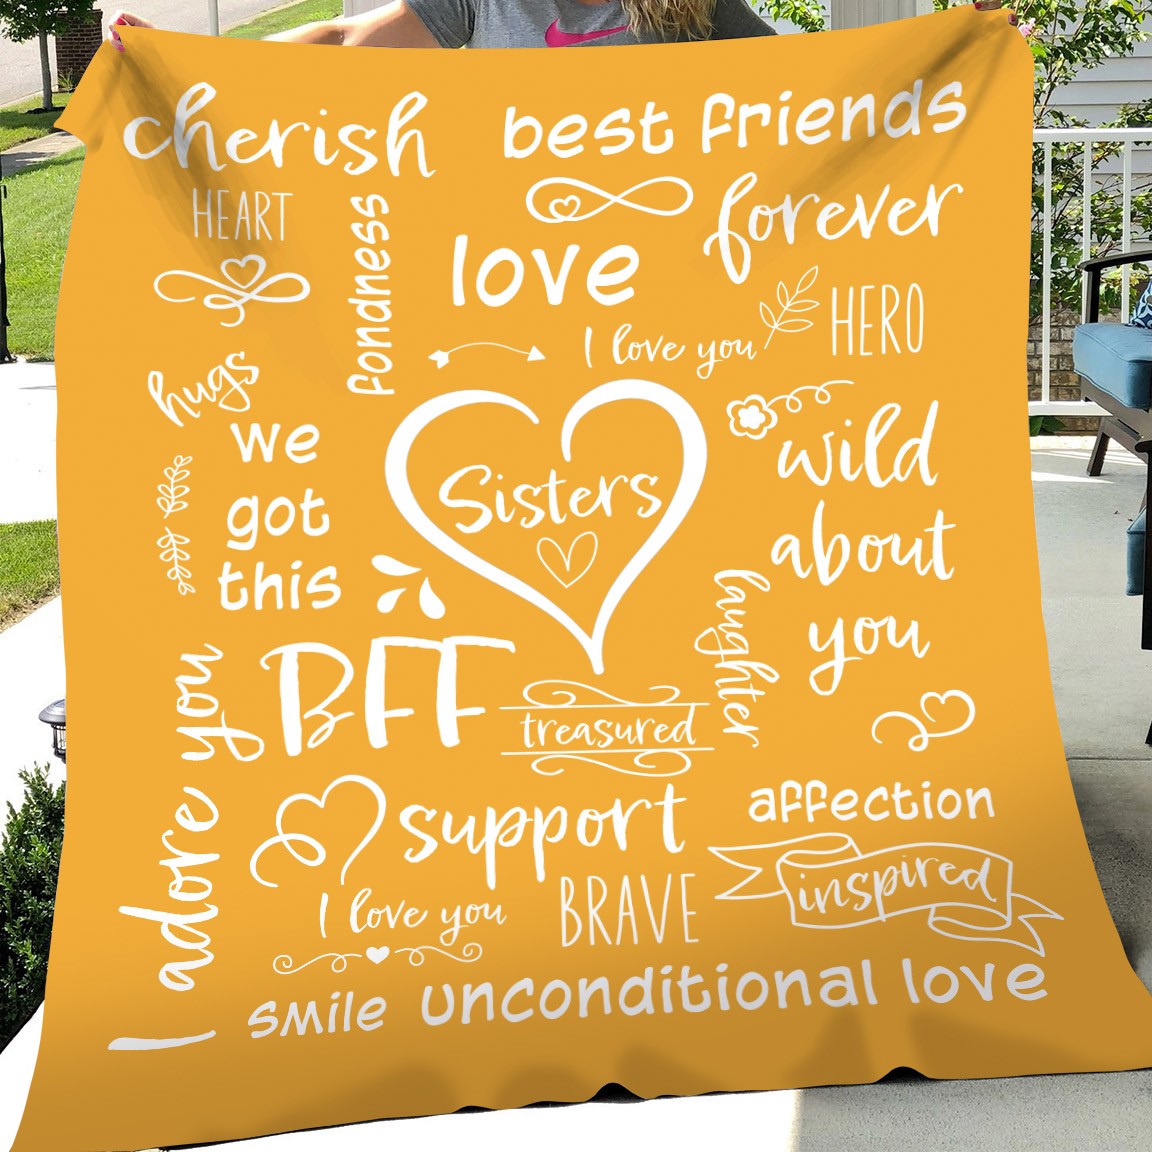 cherish
best friends
HEART
fondness
forever
love
I love you
HERO
hugs
we
got
this
Sisters
wild
about
you
laughter
BFF
treasured
I adore you
support
affection
inspired
I love you
BRAVE
smile
unconditional love